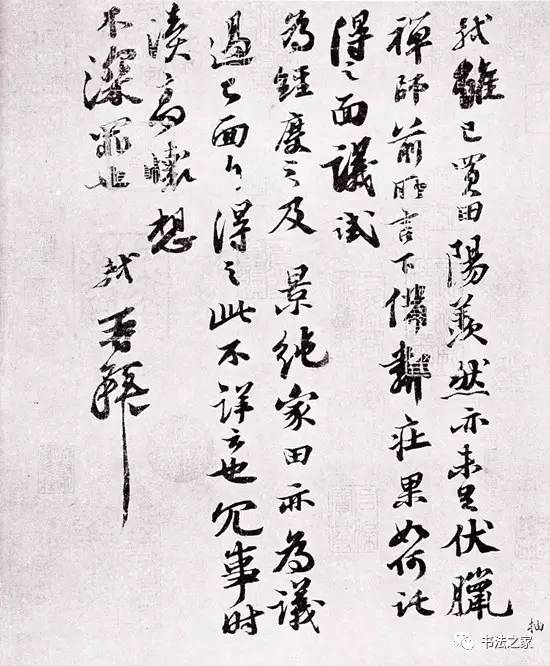 軾雖已買田陽羨然亦未足伏臘
禪師前所言下備鄰莊果如何託
得之面議試
為經度之及景純家田亦為議
過已面白得之此不詳云也冗事時
瀆高懷想
不深罪也軾再拜
抽
书法之家